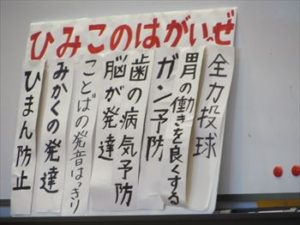 ひみこのはがいぜ
全力投球
胃の働きを良くする
ガン予防
歯の病気予防
脳が発達
ことばの発音はっきり
みかくの発達
ひまん防止